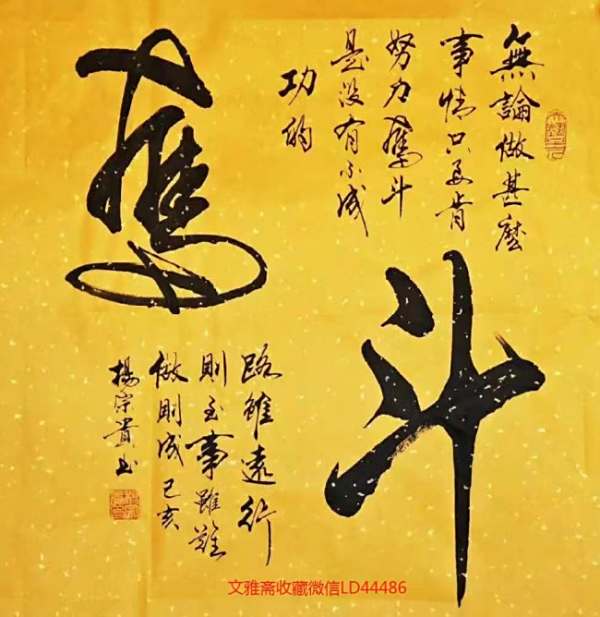 奮
斗
無論做甚麼
事情只要肯
努力奮斗
是没有不成
功的
路雖遠行
則至事雖難
做則成己亥
楊宗貴书
文雅斋收藏微信LD44486